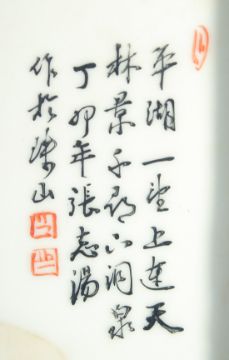 平湖一望上連天
林景千尋下洞泉
丁卯年張志湯
作於珠山